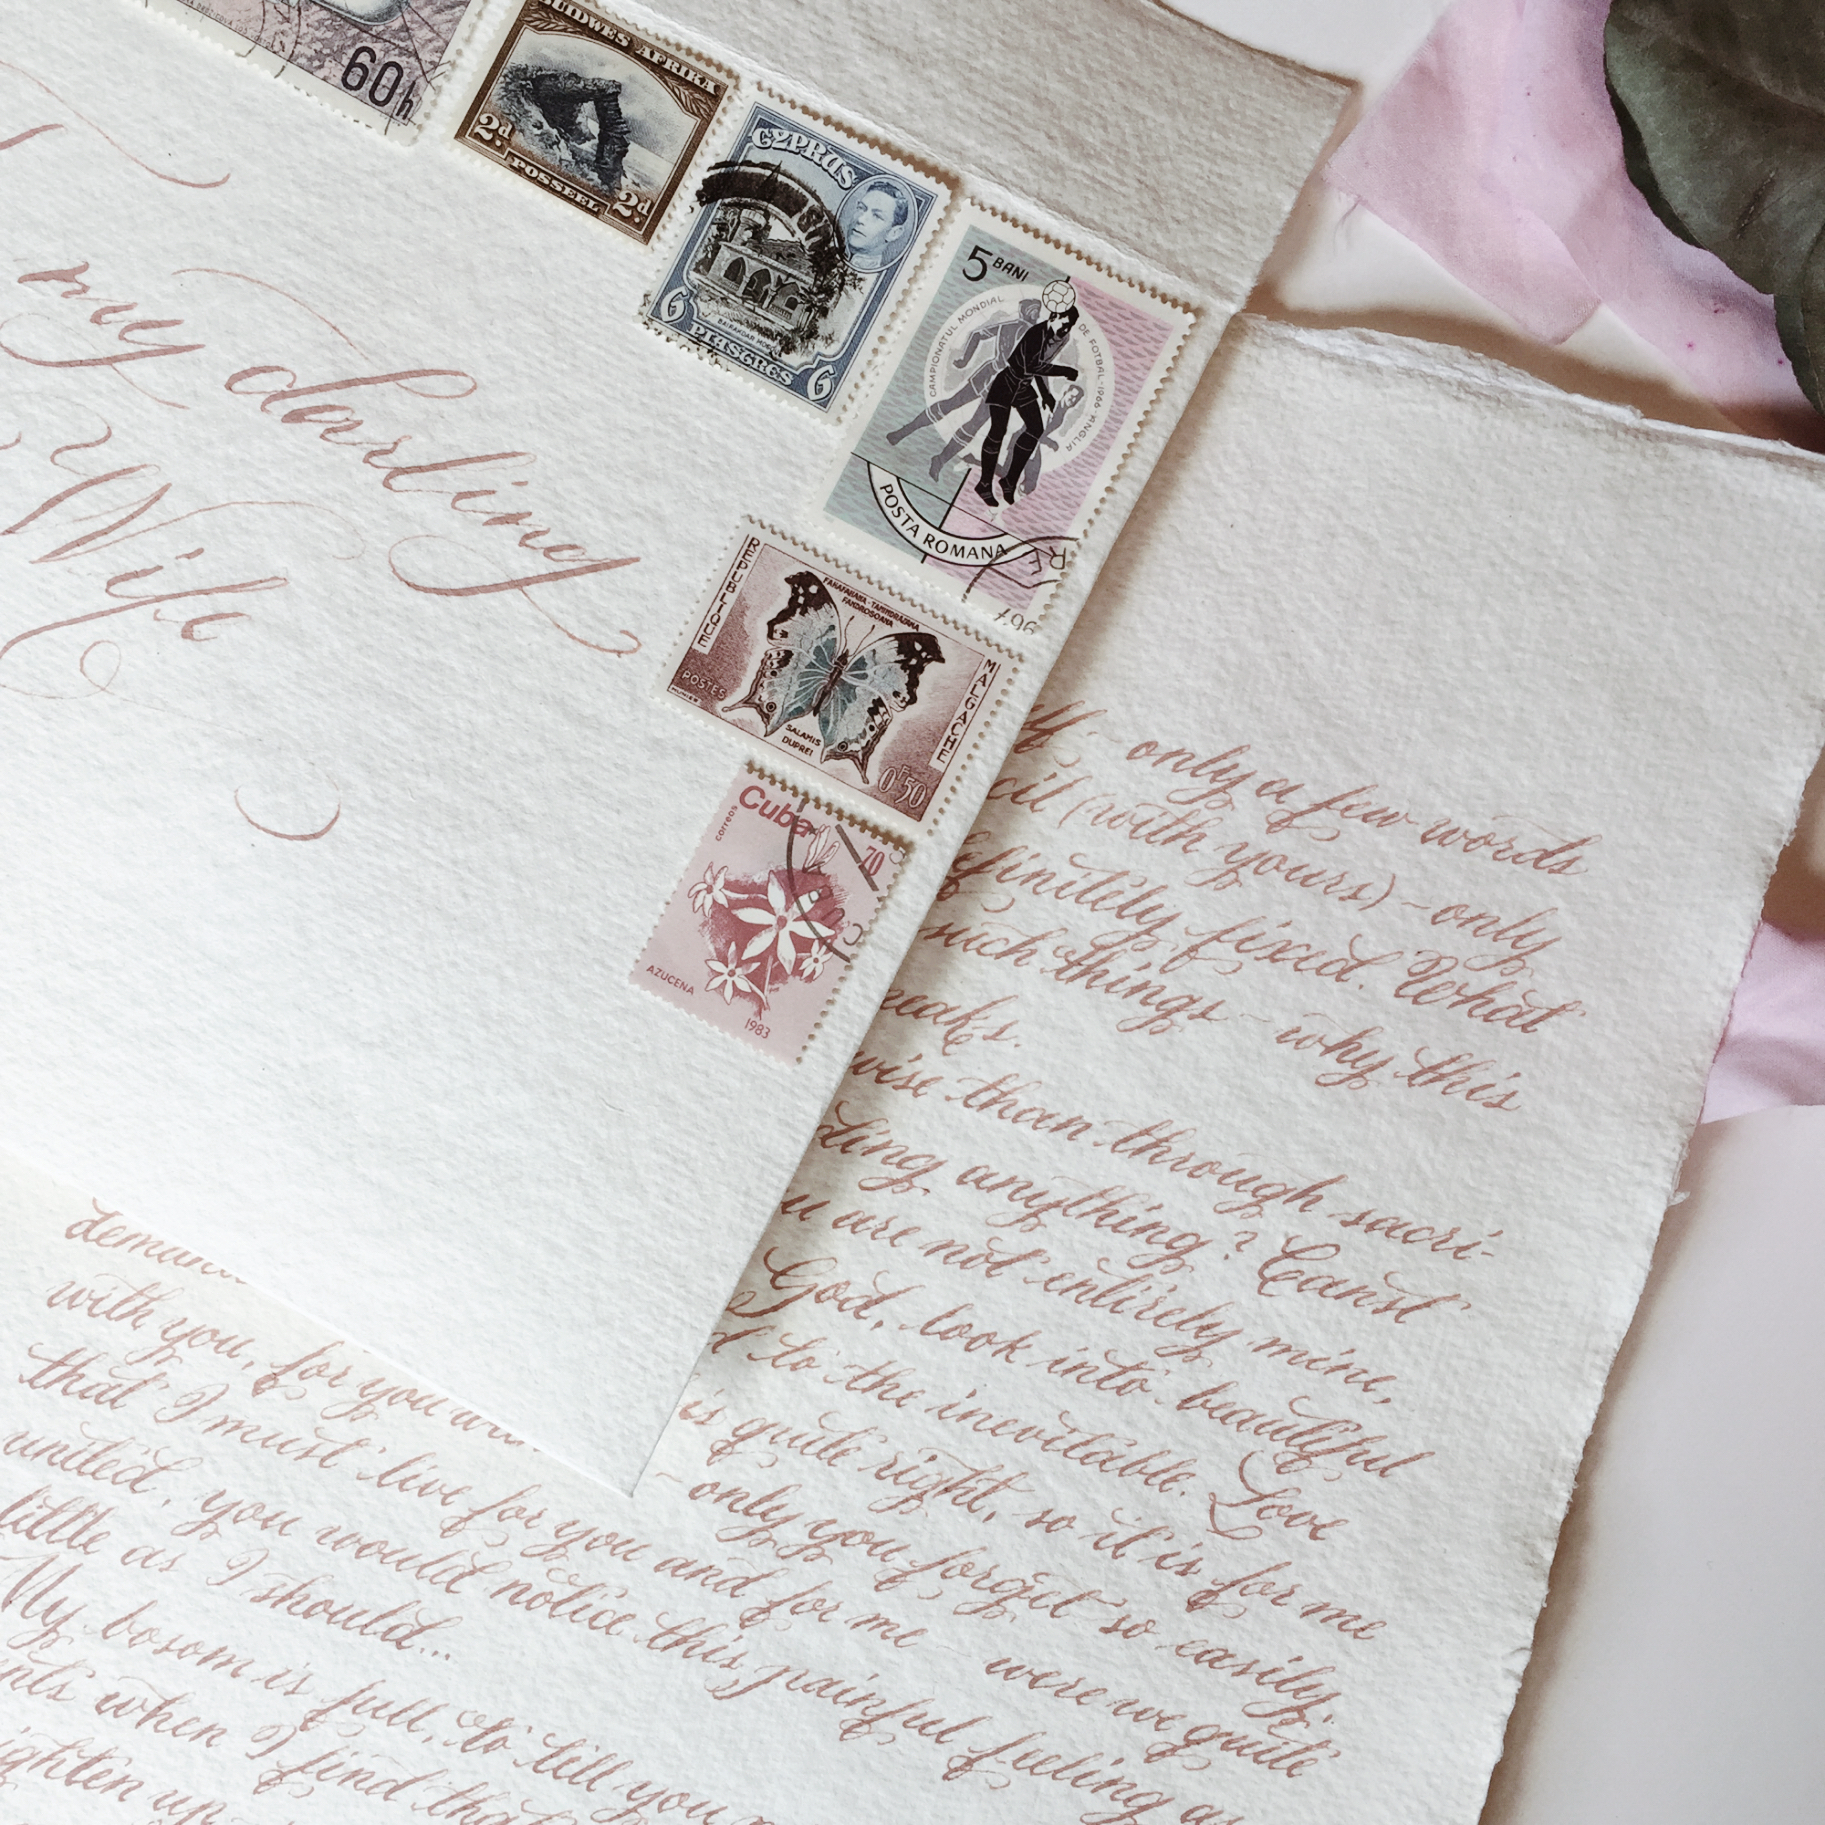 60h
SUIDWES AFRIKA
2d
POSSEEL
2d
CYPRUS
6 PIASTRES 6
5 BANI
CAMPIONATUL MONDIAL DE FOTBAL · 1966 ANGLIA
POSTA ROMANA
my darling
Wife
REPUBLIQUE
MALGACHE
FANAFAHANA - TAMINDRAZANA
FANDROSOANA
POSTES
SALAMIS
DUPREI
0F50
Cuba
correos
70
AZUCENA
1983
- only a few words
(with yours) - only
fixed. What
such things - why this
than through sacri-
anything? Canst
are not entirely mine,
God, look into beautiful
to the inevitable. Love
is quite right, so it is for me
- only you forget so easily,
with you, for you
that I must live for you and for me - were we quite
united, you would notice this painful feeling as
little as I should...
My bosom is full, to tell you
when I find
up